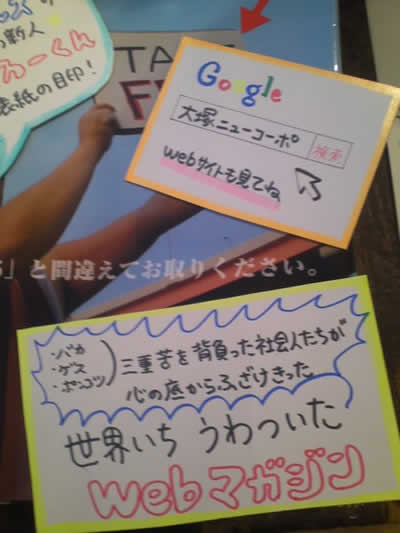 の新人
ろーくん
表紙の目印!
TA
F
Google
大塚ニューコーポ
検索
webサイトも見てね
」と間違えてお取りください。
・バカ
・ゲス
・ポンコツ
三重苦を背負った社会人たちが
心の底からふざけきった
世界いち うわついた
webマガジン